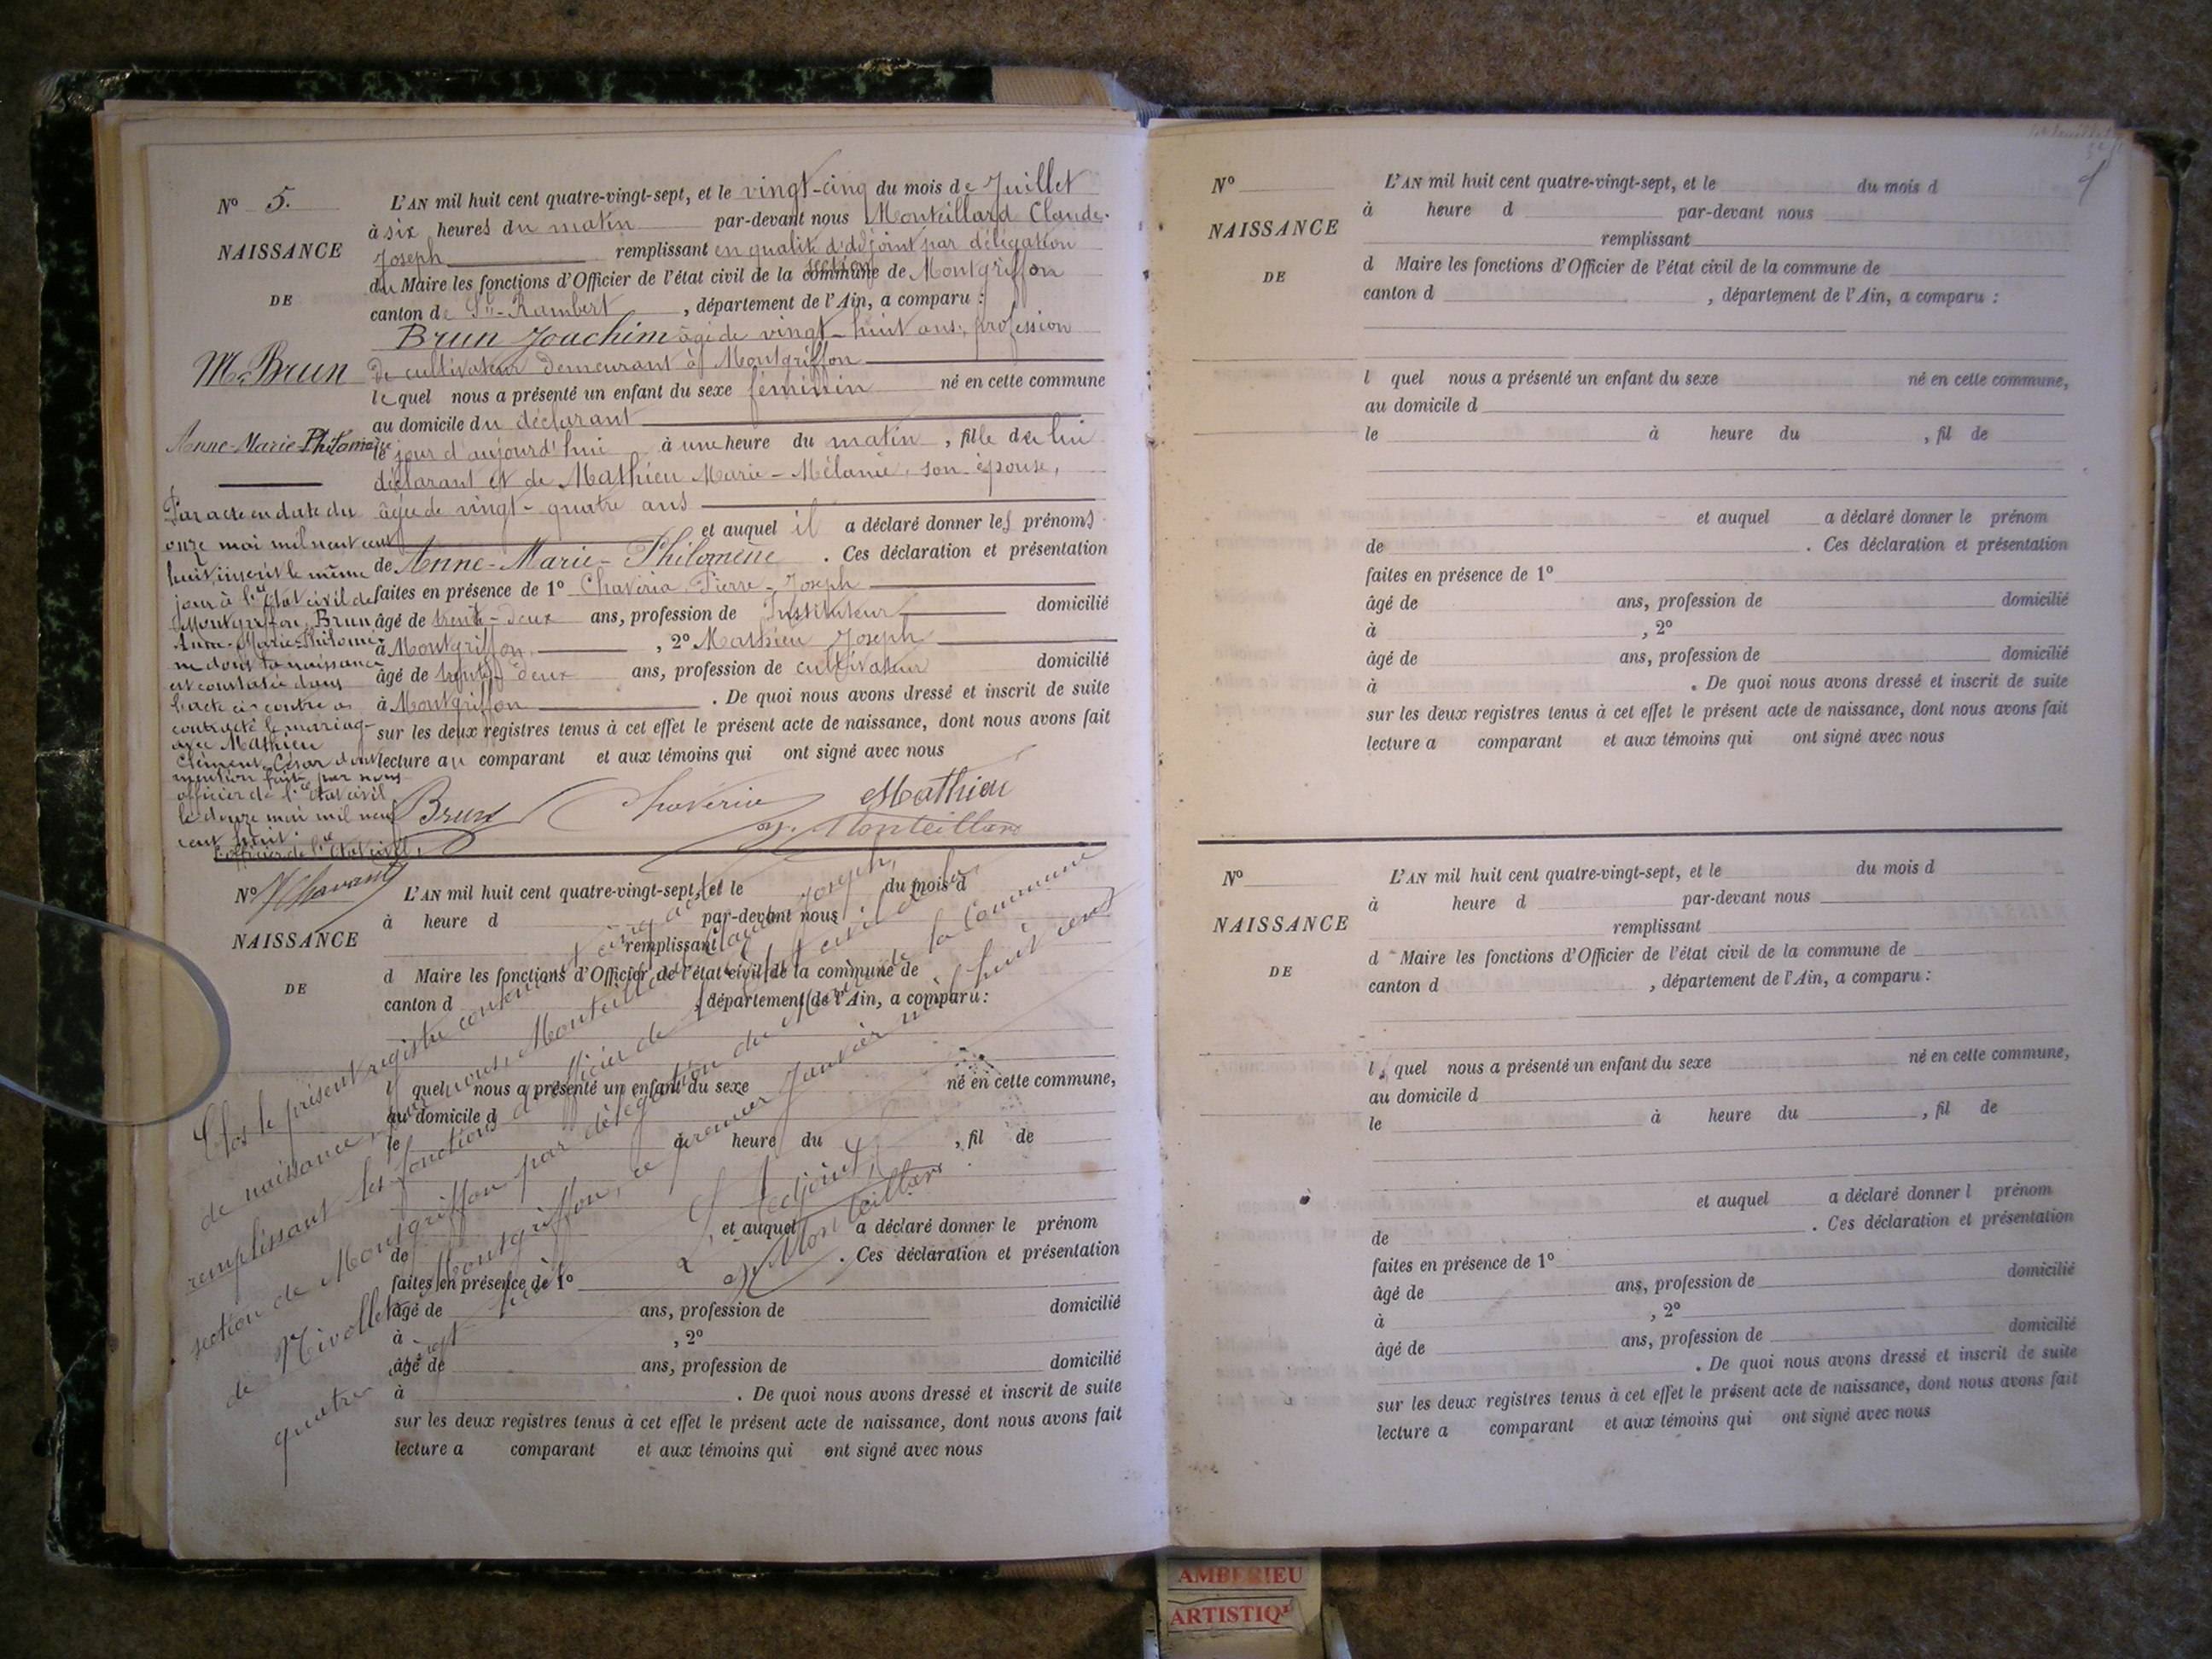 N° 5.
NAISSANCE
DE
Mlle Brun
Anne-Marie-Philomène
L'AN mil huit cent quatre-vingt-sept, et le vingt-cinq du mois de Juillet
à six heures du matin par-devant nous Monteillard Claude-
Joseph remplissant en qualité d'adjoint par délégation
du Maire les fonctions d'Officier de l'état civil de la commune section de Montgriffon
canton de St-Rambert, département de l'Ain, a comparu :
Brun Joachim âgé de vingt-huit ans, profession
de cultivateur demeurant à Montgriffon
lequel nous a présenté un enfant du sexe féminin né en cette commune
au domicile du déclarant
le jour d'aujourd'hui à une heure du matin, fille de lui
déclarant et de Mathieu Marie-Mélanie, son épouse,
âgée de vingt-quatre ans
et auquel il a déclaré donner les prénoms
de Anne-Marie-Philomène. Ces déclaration et présentation
faites en présence de 1° Chaveria Pierre-Joseph
âgé de trente-deux ans, profession de Instituteur domicilié
à Montgriffon, 2° Mathieu Joseph
âgé de trente-deux ans, profession de cultivateur domicilié
à Montgriffon. De quoi nous avons dressé et inscrit de suite
sur les deux registres tenus à cet effet le présent acte de naissance, dont nous avons fait
lecture au comparant et aux témoins qui ont signé avec nous
Brun Chaveria Mathieu
Monteillard
Par acte en date du
onze mai mil neuf cent
huit inscrit le même
jour à l'état civil de
Montgriffon, Brun
Anne-Marie-Philomè-
ne dont la naissance
est constatée dans
l'acte ci-contre a
contracté le mariage
avec Mathieu
Clément-César dont
mention faite par nous
officier de l'état civil
le douze mai mil neuf
cent huit.
L'officier de l'état civil,
N°
NAISSANCE
DE
L'AN mil huit cent quatre-vingt-sept, et le du mois d
à heure d par-devant nous
remplissant
d Maire les fonctions d'Officier de l'état civil de la commune de
canton d , département de l'Ain, a comparu :
l quel nous a présenté un enfant du sexe né en cette commune,
au domicile d
le à heure du , fil de
et auquel a déclaré donner le prénom
de . Ces déclaration et présentation
faites en présence de 1°
âgé de ans, profession de domicilié
à , 2°
âgé de ans, profession de domicilié
à . De quoi nous avons dressé et inscrit de suite
sur les deux registres tenus à cet effet le présent acte de naissance, dont nous avons fait
lecture a comparant et aux témoins qui ont signé avec nous
Clos le présent registre contenant cinq actes
de naissance par nous, Monteillard Claude Joseph,
remplissant les fonctions d'officier de l'état civil de la
section de Montgriffon par délégation du Maire de la Commune
de Nivollet Montgriffon, ce premier Janvier mil huit cent
quatre vingt huit
L'Adjoint,
Monteillard
N°
NAISSANCE
DE
L'AN mil huit cent quatre-vingt-sept, et le du mois d
à heure d par-devant nous
remplissant
d Maire les fonctions d'Officier de l'état civil de la commune de
canton d , département de l'Ain, a comparu :
l quel nous a présenté un enfant du sexe né en cette commune,
au domicile d
le à heure du , fil de
et auquel a déclaré donner le prénom
de . Ces déclaration et présentation
faites en présence de 1°
âgé de ans, profession de domicilié
à , 2°
âgé de ans, profession de domicilié
à . De quoi nous avons dressé et inscrit de suite
sur les deux registres tenus à cet effet le présent acte de naissance, dont nous avons fait
lecture a comparant et aux témoins qui ont signé avec nous
N°
NAISSANCE
DE
L'AN mil huit cent quatre-vingt-sept, et le du mois d
à heure d par-devant nous
remplissant
d Maire les fonctions d'Officier de l'état civil de la commune de
canton d , département de l'Ain, a comparu :
l quel nous a présenté un enfant du sexe né en cette commune,
au domicile d
le à heure du , fil de
et auquel a déclaré donner l prénom
de . Ces déclaration et présentation
faites en présence de 1°
âgé de ans, profession de domicilié
à , 2°
âgé de ans, profession de domicilié
à . De quoi nous avons dressé et inscrit de suite
sur les deux registres tenus à cet effet le présent acte de naissance, dont nous avons fait
lecture a comparant et aux témoins qui ont signé avec nous
AMBERIEU
ARTISTIQ